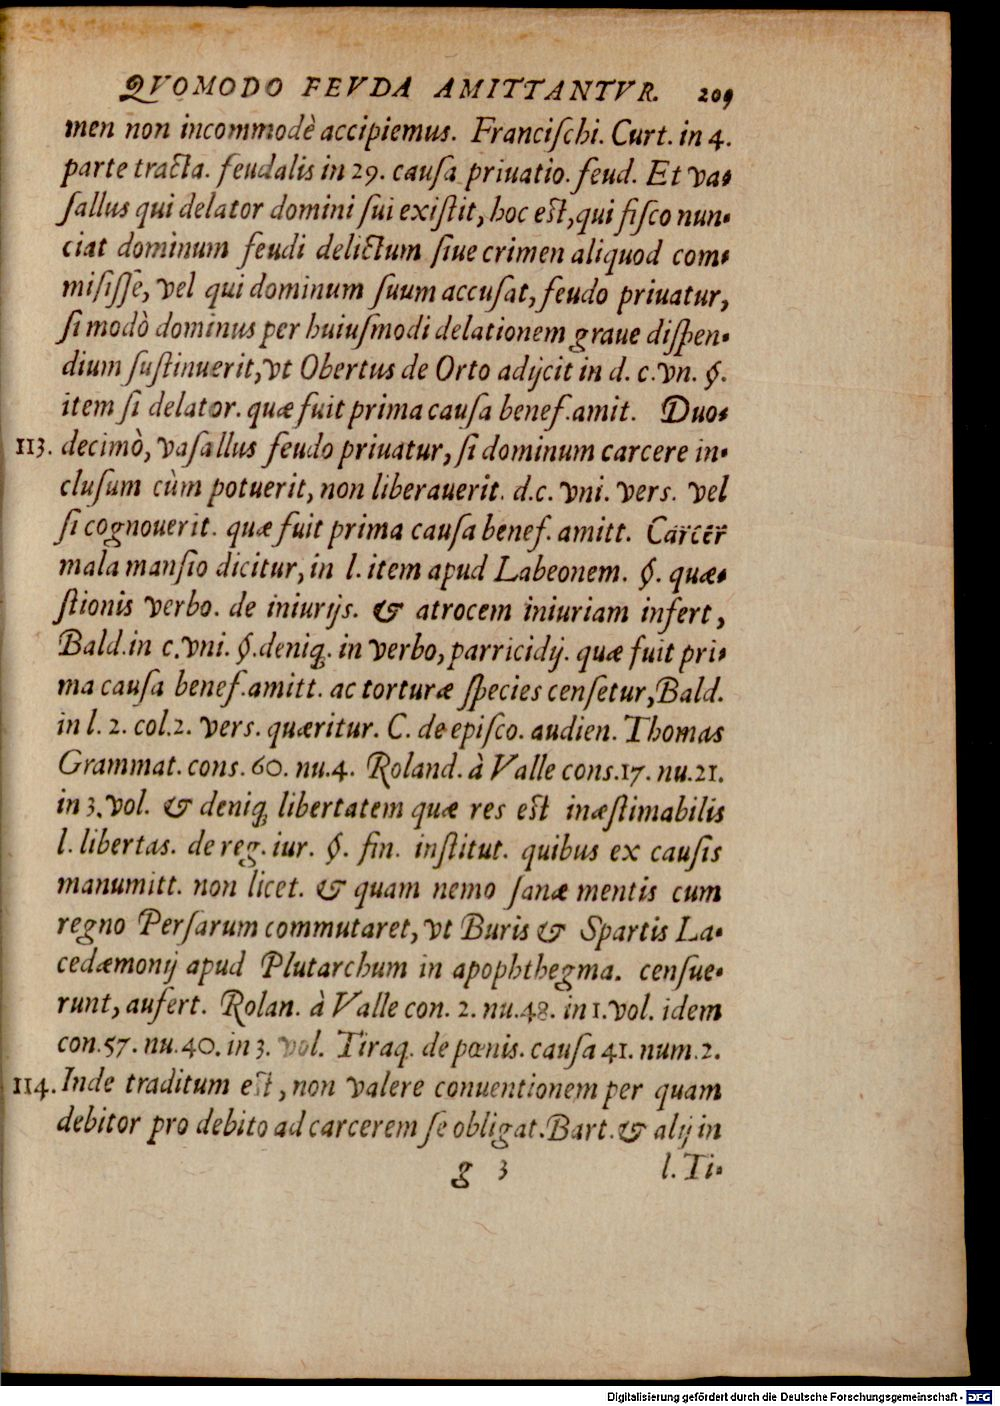 QVOMODO FEVDA AMITTANTVR. 209
men non incommodè accipiemus. Franciſchi. Curt. in 4.
parte tracta. feudalis in 29. cauſa priuatio. feud. Et va-
ſallus qui delator domini ſui exiſtit, hoc eſt, qui fiſco nun-
ciat dominum feudi delictum ſiue crimen aliquod com-
miſiſſe, vel qui dominum ſuum accuſat, feudo priuatur,
ſi modò dominus per huiuſmodi delationem graue diſpen-
dium ſuſtinuerit, vt Obertus de Orto adijcit in d. c. vn. §.
item ſi delator. quæ fuit prima cauſa benef. amit. Duo-
113. decimò, vaſallus feudo priuatur, ſi dominum carcere in-
cluſum cùm potuerit, non liberauerit. d.c. vni. verſ. vel
ſi cognouerit. quæ fuit prima cauſa benef. amitt. Carcer
mala manſio dicitur, in l. item apud Labeonem. §. quæ-
ſtionis verbo. de iniurijs. & atrocem iniuriam infert,
Bald. in c. vni. §. deniq. in verbo, parricidij. quæ fuit pri-
ma cauſa benef. amitt. ac torturæ ſpecies cenſetur, Bald.
in l. 2. col. 2. verſ. quæritur. C. de epiſco. audien. Thomas
Grammat. conſ. 60. nu. 4. Roland. à Valle conſ. 17. nu. 21.
in 3. vol. & deniq; libertatem quæ res eſt inæſtimabilis
l. libertas. de reg. iur. §. fin. inſtitut. quibus ex cauſis
manumitt. non licet. & quam nemo ſanæ mentis cum
regno Perſarum commutaret, vt Buris & Spartis La-
cedæmonij apud Plutarchum in apophthegma. cenſue-
runt, aufert. Rolan. à Valle con. 2. nu. 48. in 1. vol. idem
con. 57. nu. 40. in 3. vol. Tiraq. de pœnis. cauſa 41. num. 2.
114. Inde traditum eſt, non valere conuentionem per quam
debitor pro debito ad carcerem ſe obligat. Bart. & alij in
g 3 l. Ti-
Digitalisierung gefördert durch die Deutsche Forschungsgemeinschaft - DFG